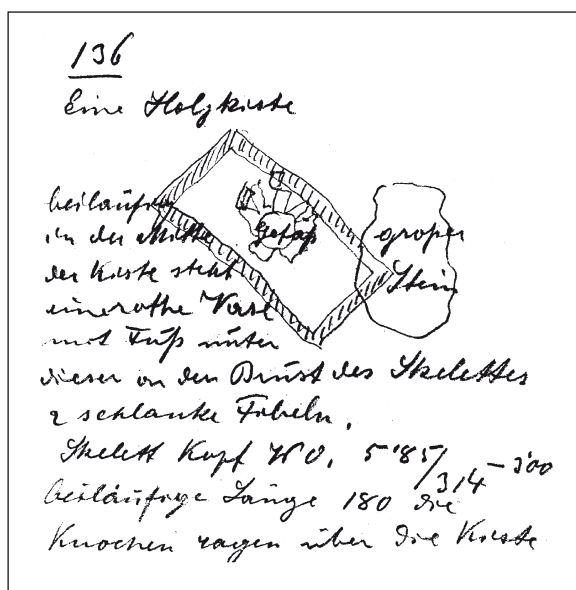 136
Eine Holzkiste
beiläufig
in der Mitte Gefäß großer
der Kiste steht Stein
eine rothe Vase
mit Fuß unter
dieser an der Brust des Skelettes
2 schlanke Fibeln.
Skelett Kopf WO. 5'85/314 – 3'00
beiläufige Länge 180 die
Knochen ragen über die Kiste